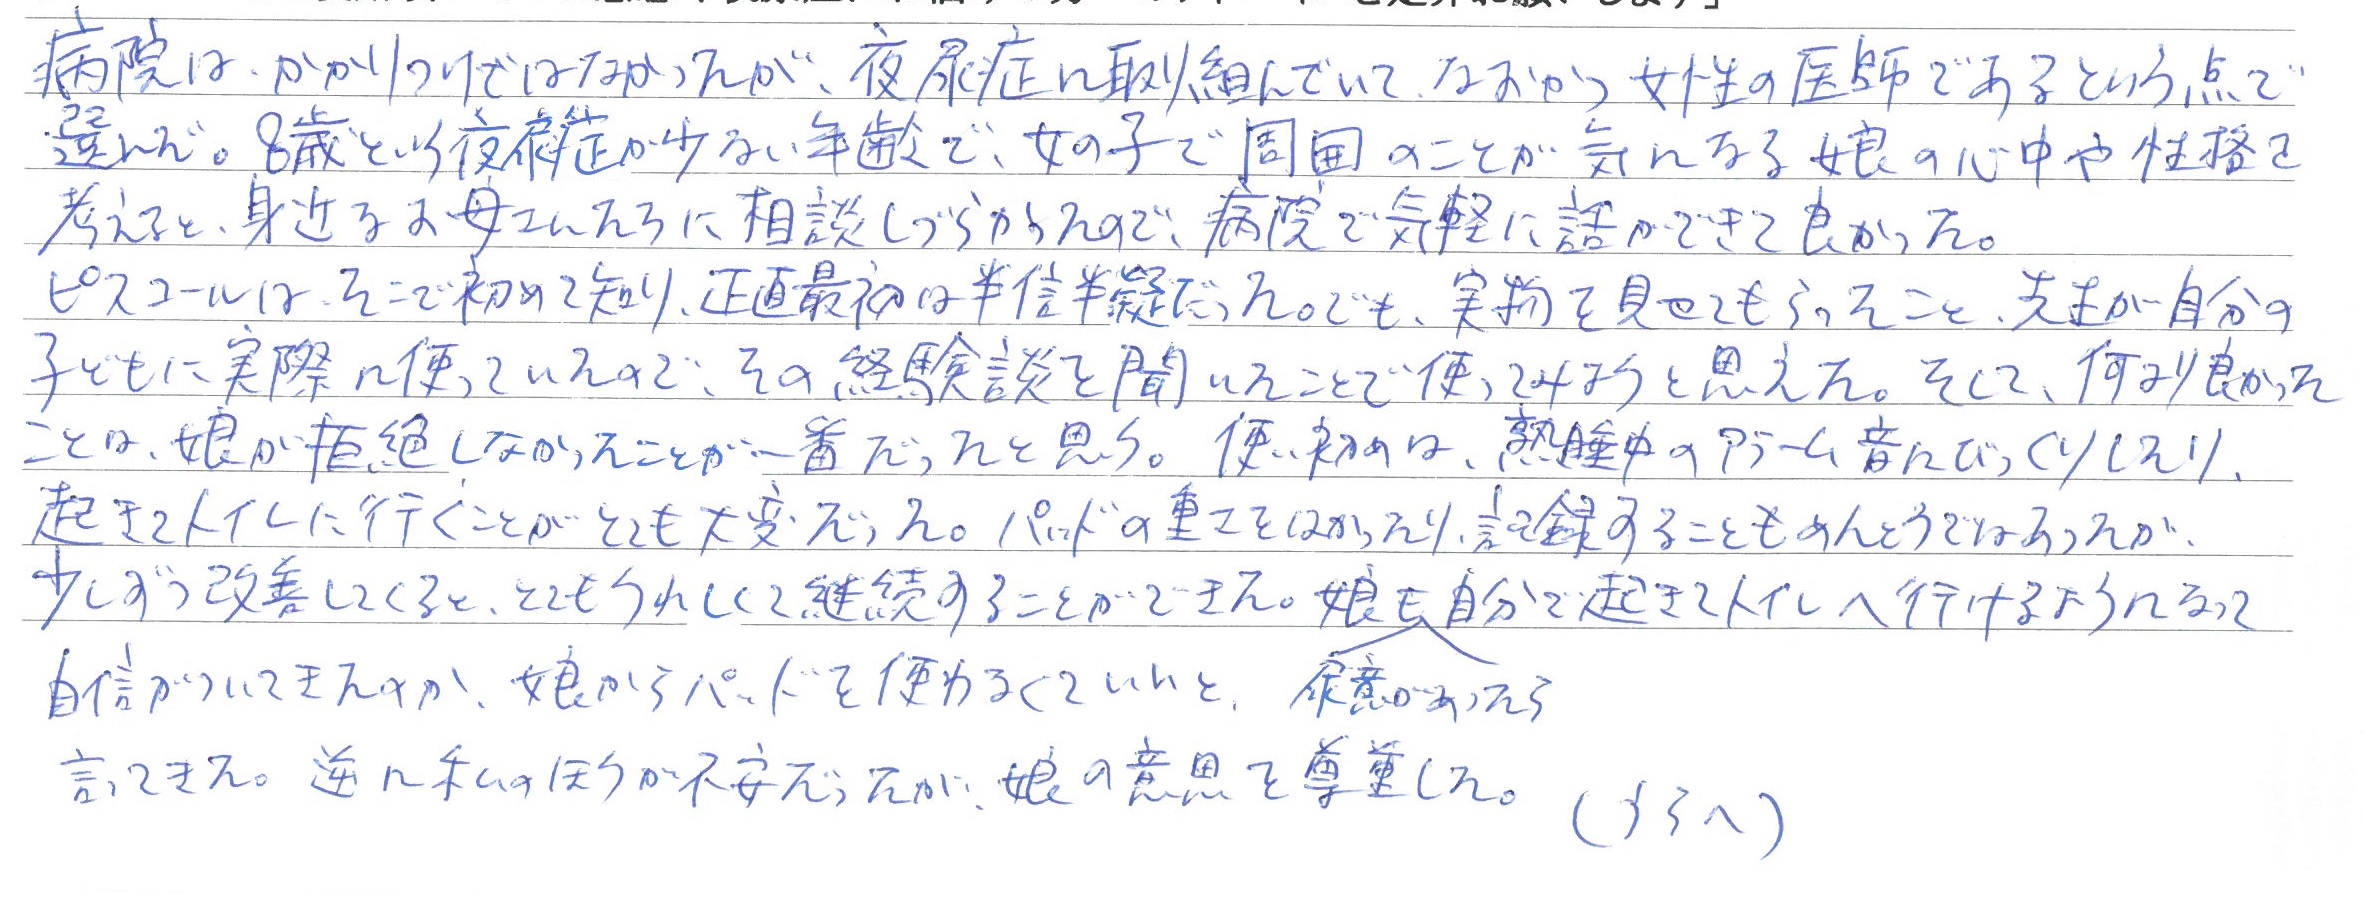 病院は、かかりつけではなかったが、夜尿症に取り組んでいて、なおかつ女性の医師であるという点で
選んだ。8歳という夜尿症が少ない年齢で、女の子で周囲のことが気になる娘の心中や性格を
考えると、身近なお母さんたちに相談しづらかったので、病院で気軽に話ができて良かった。
ピスコールは、そこで初めて知り、正直最初は半信半疑だった。でも、実物を見せてもらったこと、先生が自分の
子どもに実際に使っていたので、その経験談を聞いたことで使ってみようと思えた。そして、何より良かった
ことは、娘が拒絶しなかったことが一番だったと思う。使い初めは、熟睡中のアラーム音にびっくりしたり、
起きてトイレに行くことがとても大変だった。パッドの重さをはかったり、記録することもめんどうではあったが、
少しずつ改善してくると、とてもうれしくて継続することができた。娘も自分で起きてトイレへ行けるようになって
自信がついてきたのか、娘からパッドを使わなくていいと、
尿意があったら
言ってきた。逆に私のほうが不安だったが、娘の意思を尊重した。
(うらへ)